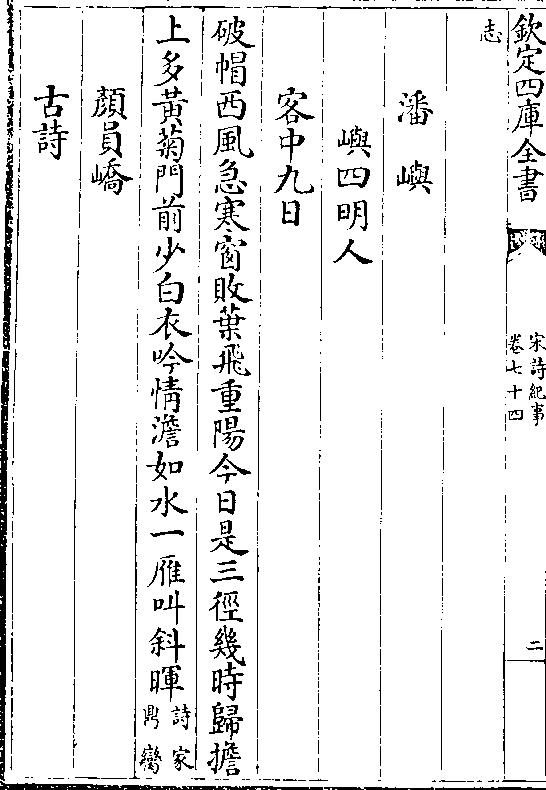 欽定四庫全書
宋詩紀事
卷七十四
二
志
潘嶼
嶼四明人
客中九日
破帽西風急寒窗敗葉飛重陽今日是三徑幾時歸擔
上多黃菊門前少白衣吟情澹如水一雁叫斜暉詩家
鼎臠
顏員嶠
古詩